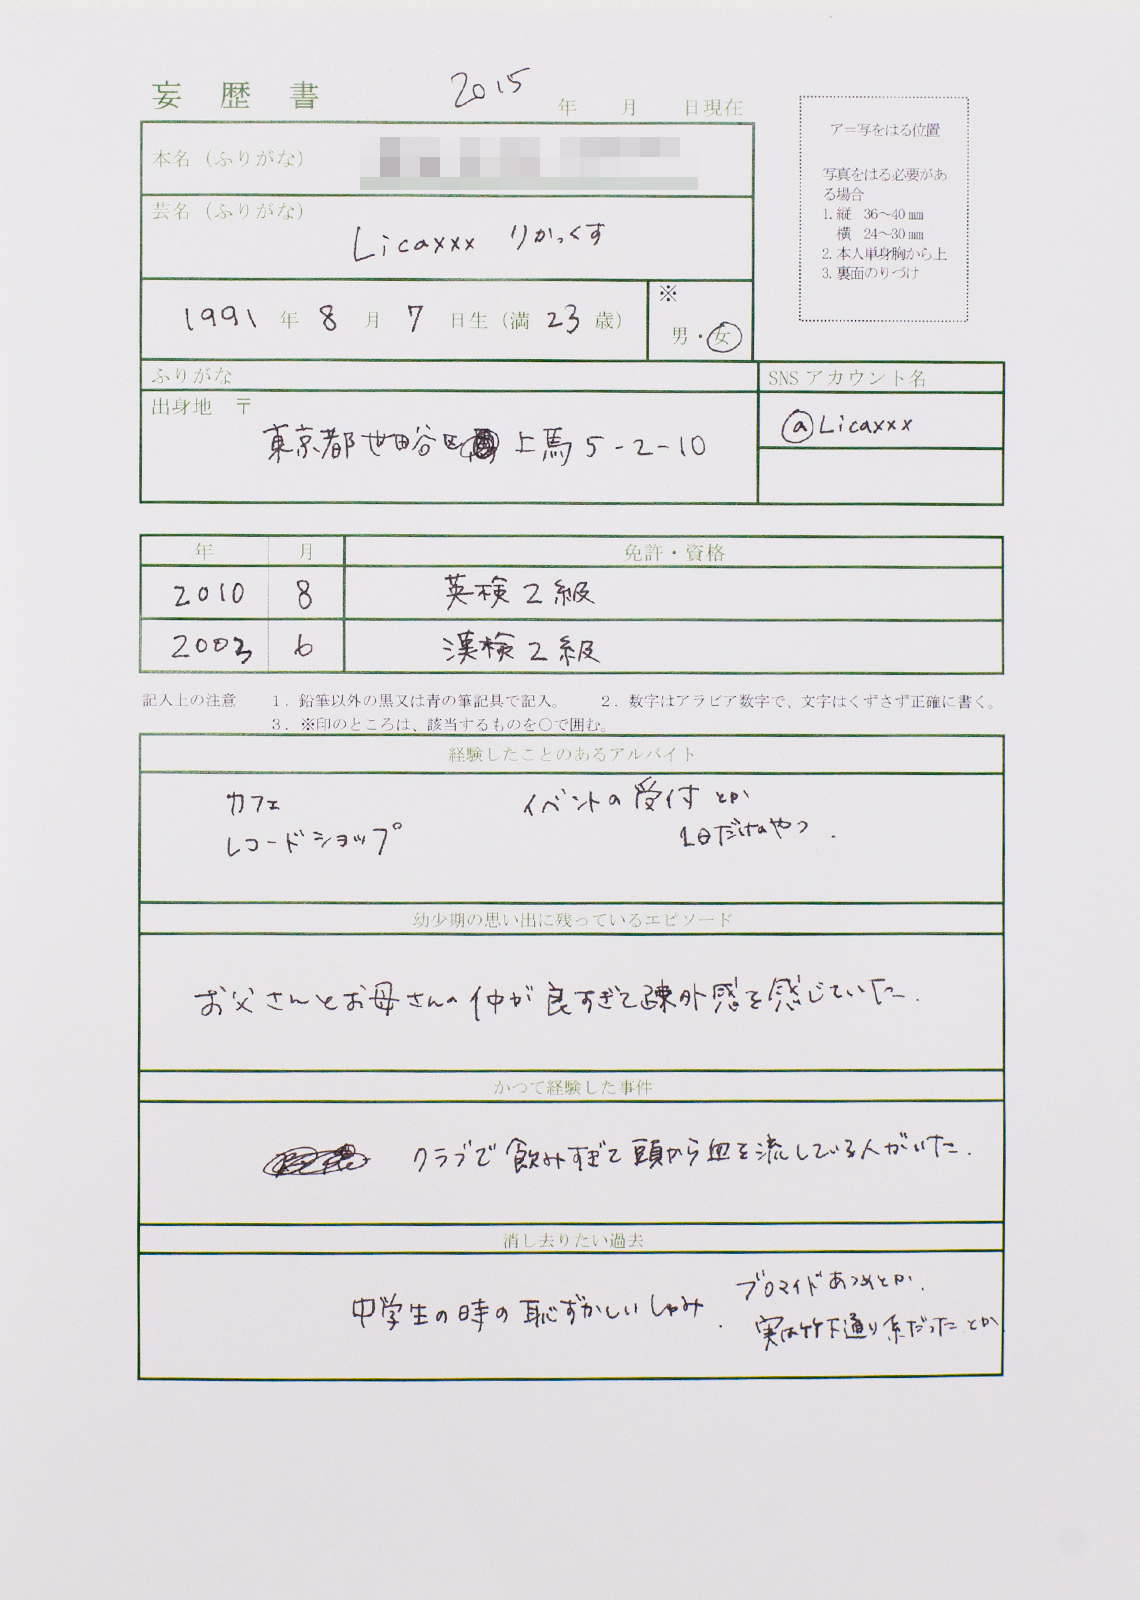 妄歴書 2015 年 月 日現在
本名（ふりがな）
芸名（ふりがな）
Licaxxx りかっくす
1991 年 8 月 7 日生（満 23 歳）
※
男・女
ア＝写をはる位置
写真をはる必要があ
る場合
1. 縦 36～40 mm
横 24～30 mm
2. 本人単身胸から上
3. 裏面のりづけ
ふりがな
出身地 〒
東京都世田谷区 上馬5-2-10
SNS アカウント名
@Licaxxx
年 月 免許・資格
2010 8 英検2級
2003 6 漢検2級
記入上の注意 1．鉛筆以外の黒又は青の筆記具で記入。 2．数字はアラビア数字で、文字はくずさず正確に書く。
3．※印のところは、該当するものを○で囲む。
経験したことのあるアルバイト
カフェ
レコードショップ
イベントの受付とか
1日だけのやつ.
幼少期の思い出に残っているエピソード
お父さんとお母さんの仲が良すぎて疎外感を感じていた.
かつて経験した事件
クラブで飲みすぎて頭から血を流している人がいた.
消し去りたい過去
中学生の時の恥ずかしいしゅみ.
ブロマイドあつめとか.
実は竹下通り系だったとか